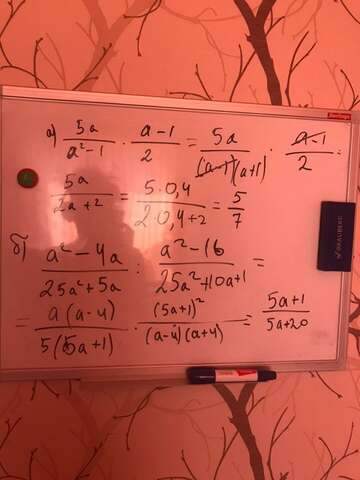 а) 5a/(a²-1) · (a-1)/2 = 5a/((a-1)(a+1)) · (a-1)/2 =
5a/(2a+2) = (5·0,4)/(2·0,4+2) = 5/7
б) (a²-4a)/(25a²+5a) : (a²-16)/(25a²+10a+1) =
= a(a-4)/(5(5a+1)) · (5a+1)²/((a-4)(a+4)) = (5a+1)/(5a+20)
BRAUBERG